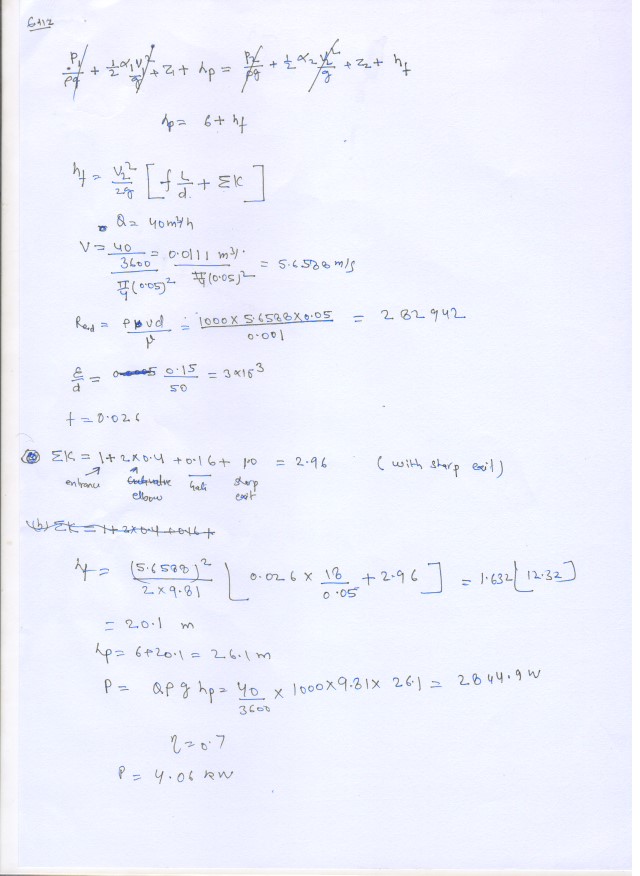 6.112
P₁/ρg + 1/2 α₁ V₁²/g + Z₁ + hp = P₂/ρg + 1/2 α₂ V₂²/g + Z₂ + hf
hp = 6 + hf
hf = V₂²/2g [ f L/d + ΣK ]
Q = 40 m³/h
V = (40/3600)/(π/4 (0.05)²) = 0.0111 m³/·/(π/4 (0.05)²) = 5.6588 m/s
Red = ρvd/μ = 1000 × 5.6588 × 0.05 / 0.001 = 282942
ε/d = 0.15/50 = 3×10³
f = 0.026
ΣK = 1 + 2×0.4 + 0.16 + 1.0 = 2.96 (with sharp exit)
entrance elbow sharp exit
(b) ΣK = 1 + 2×0.4 + 0.16 +
hf = (5.6588)²/(2×9.81) [ 0.026 × 18/0.05 + 2.96 ] = 1.632 [12.32]
= 20.1 m
hp = 6+20.1 = 26.1 m
P = Qρg hp = 40/3600 × 1000×9.81× 26.1 = 2844.9 W
η = 0.7
P = 4.06 kW